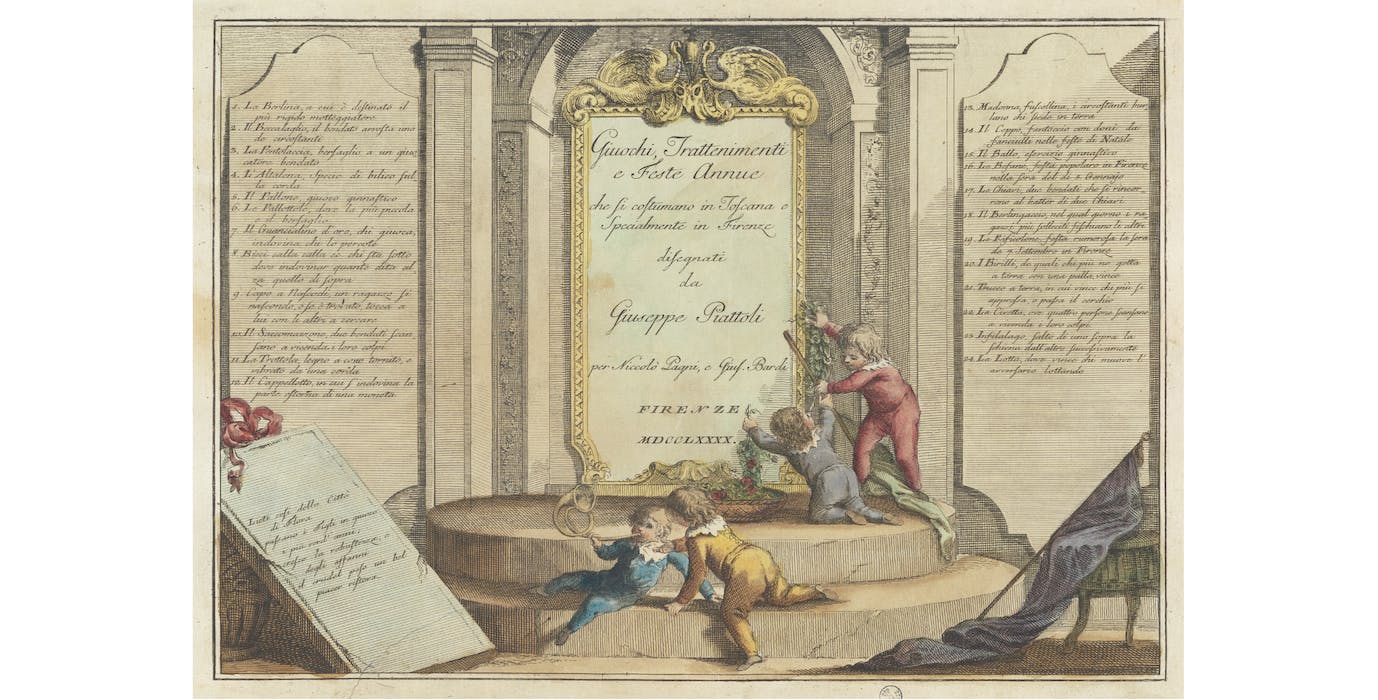 1. La Berlina, a cui è destinato il
più rigido motteggiatore
2. Il Beccalaglio, il bendato arresta uno
de circostanti
3. La Pentolaccia, bersaglio a un giuo
catore bendato
4. L'Altalena, Specie di bilico sul
la corda
5. Il Pallone, giuoco ginnastico
6. Le Pallottole, dov'è la più piccola
è il bersaglio
7. Il Guancialino d'oro, chi giuoca,
indovina chi lo percote
8. Bisci calla calla cè, chi sta sotto
deve indovinar quante dita al
za quello di sopra
9. Capo a Nascodi, un ragazzo si
nasconde, e se è trovato, tocca a
lui con li altri a cercare
10. Il Saccomazzone, due bendati scan
sano a vicenda i loro colpi
11. La Trottola, legno a cono tornito, e
vibrato da una corda
12. Il Cappelletto, in cui s'indovina la
parte esterna di una moneta.
Giuochi, Trattenimenti
e Feste Annue
che si costumano in Toscana e
Specialmente in Firenze
disegnati
da
Giuseppe Piattoli
per Niccolò Pagni, e Gius. Bardi
FIRENZE
MDCCLXXXX.
13. Madonna fuscellina, i circostanti bur
lano chi siede in terra
14. Il Ceppo, fantoccio con doni da
fanciulli nelle feste di Natale
15. Il Ballo, esercizio ginnastico
16. La Befana, festa popolare in Firenze
nella sera del dì 5. Gennajo
17. Le Chiavi, due bendati che si rincor
rono al batter di due Chiavi
18. Il Berlingaccio, nel qual giorno i ra
gazzi più solleciti fischiano li altri
19. La Rificolone, festa rumorosa la sera
de 7. Settembre in Firenze
20. I Birilli, de quali chi più ne getta
a terra con una palla, vince
21. Trucco a terra, in cui vince chi più si
appressa, e passa il cerchio
22. La Civetta, ove quattro persone scansano
a vicenda i loro colpi
23. Infilalago, salto di uno sopra la
schiena dell'altro successivamente
24. La Lotta, dove vince chi manda l'
avversario lottando
Liete così della Città
di Flora
passano i Figli in giuoco
i più verd' anni,
cresce la robustezza, e
degli affanni
il crudel peso un bel
piacer ristora.